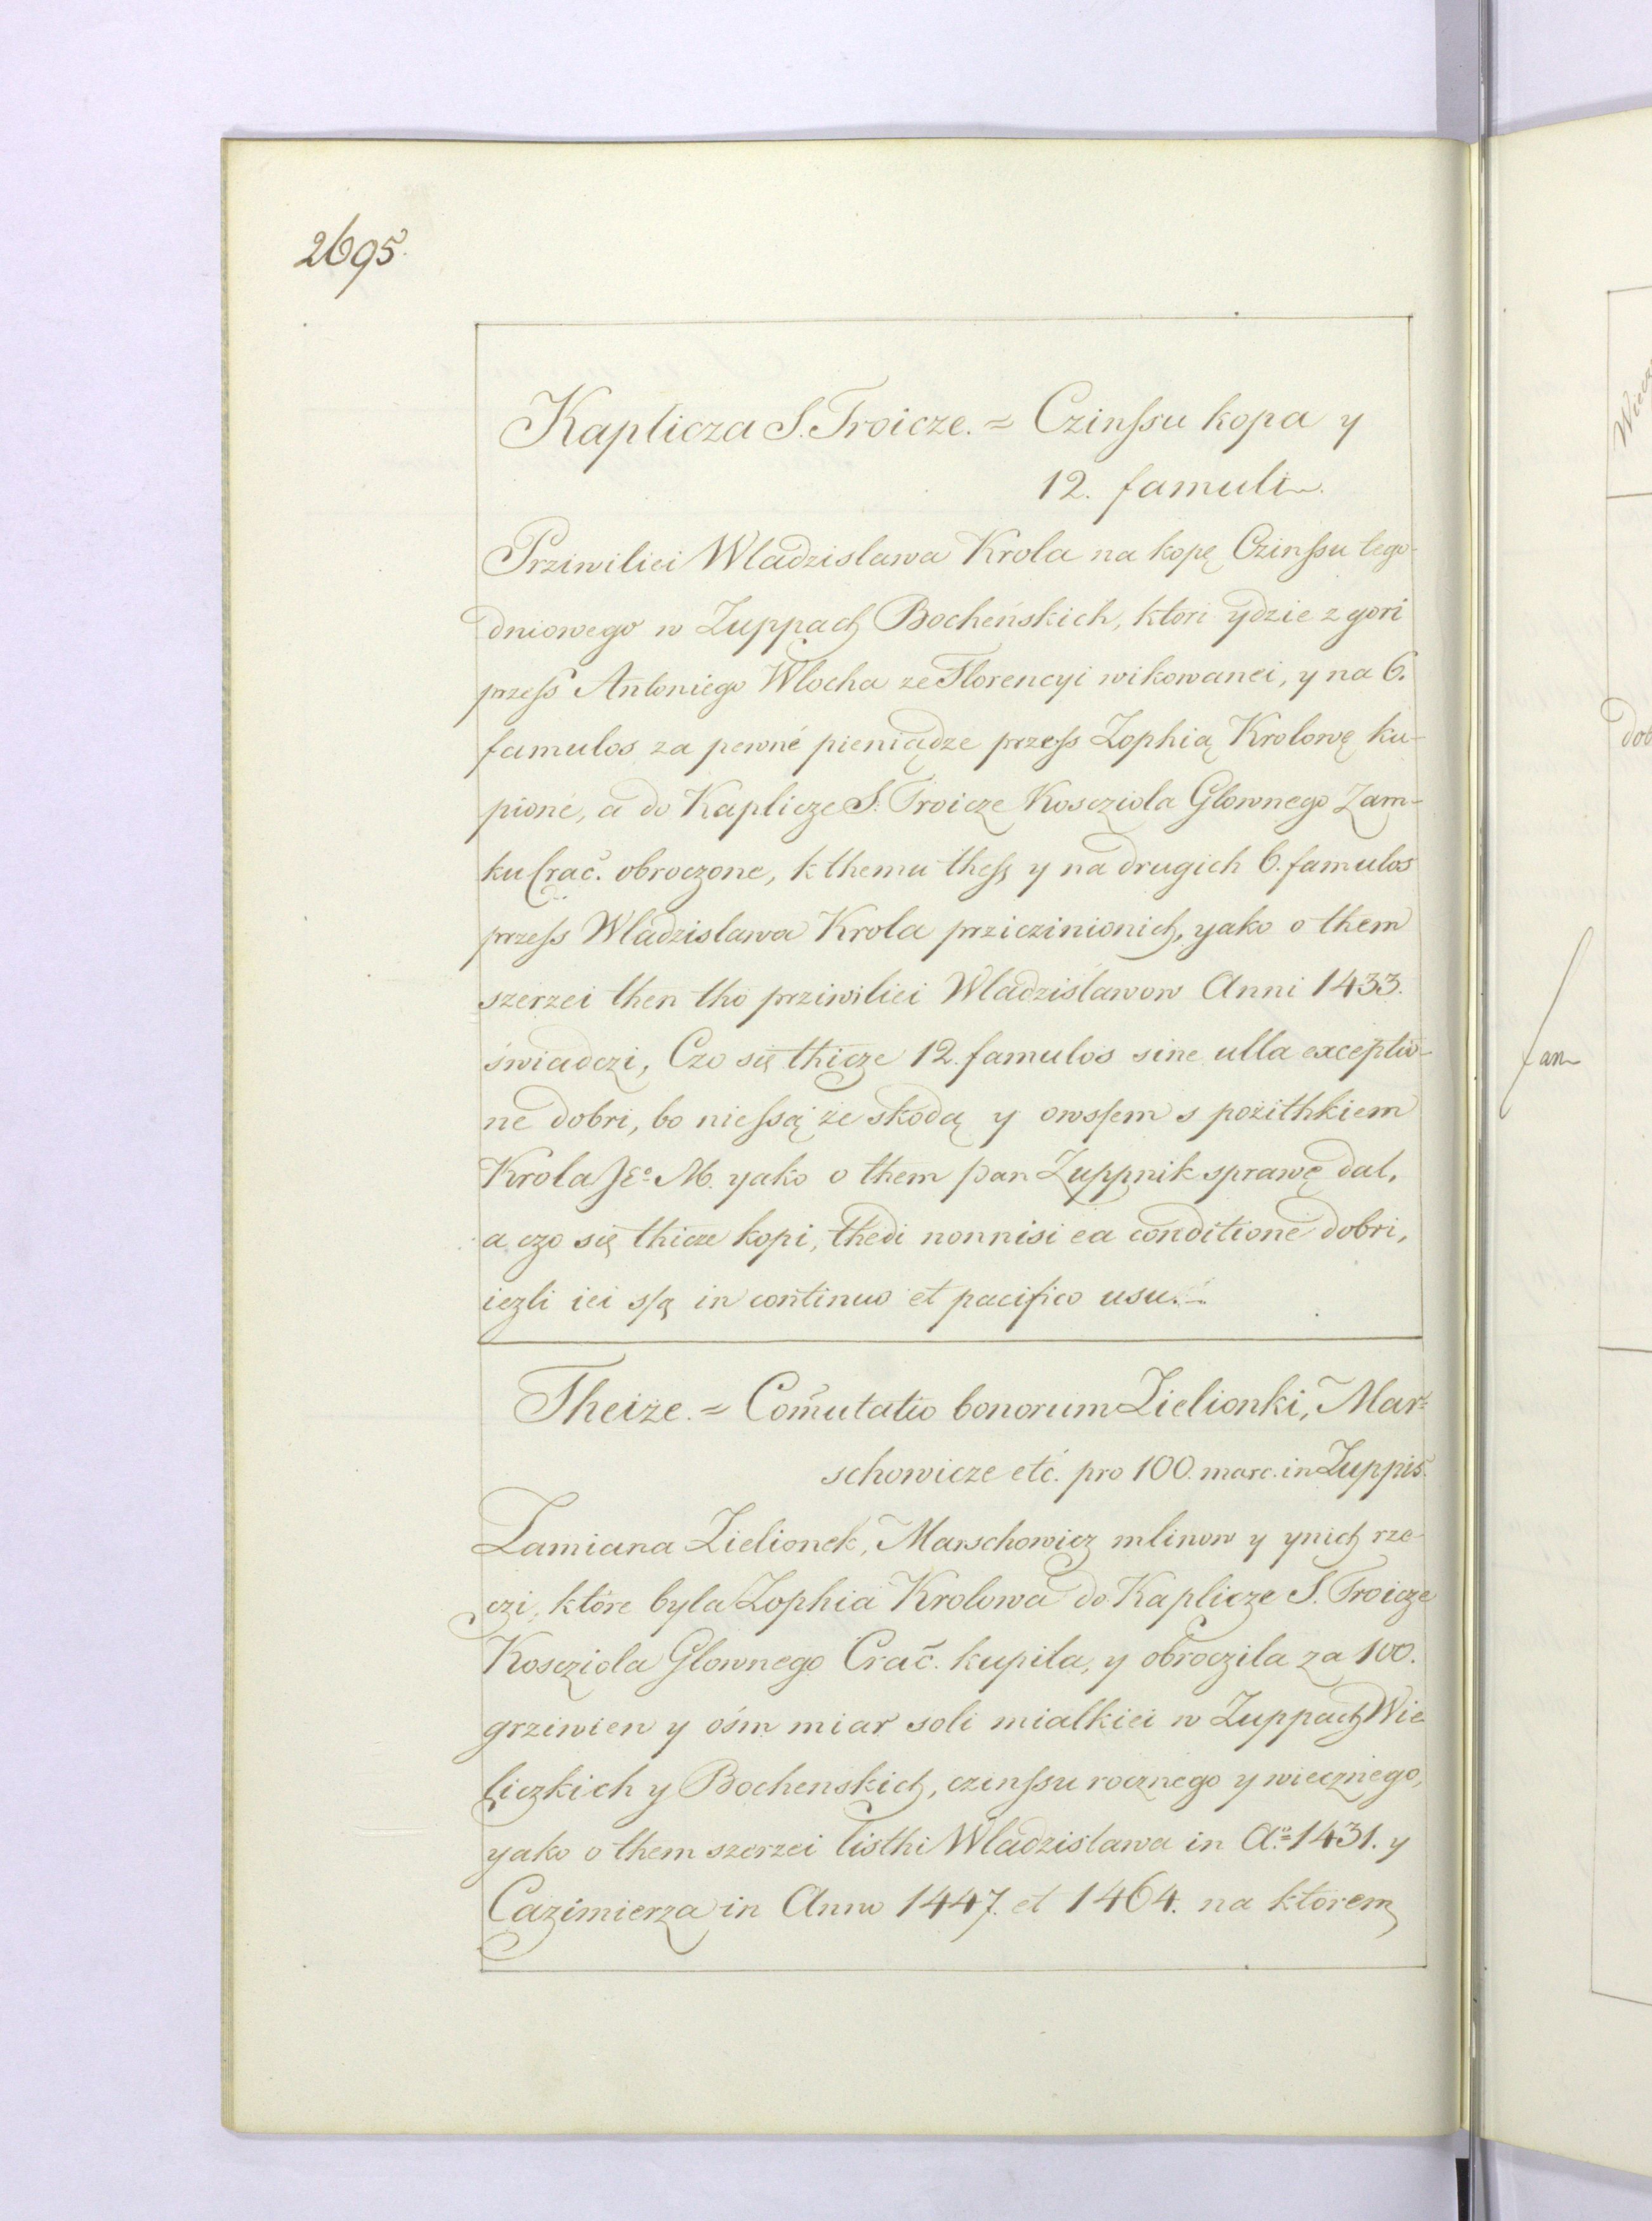 2695.
Kaplicza S. Troicze. = Czinſsu kopa y
12. famuli.
Prziwiliei Wladzislawa Krola na kopę Czinſsu tego-
dniowego w Zuppach Bocheńskich, ktori ydzie z gori
przeſs Antoniego Wlocha ze Florencyi wikowanei, y na 6.
famulos za pewné pieniądze przeſs Zophią Krolowę ku-
pioné, a do Kaplicze S. Troicze Koscziola Glownego Zam-
ku Crac. obroczone, k themu theſs y na drugich 6. famulos
przeſs Wladzislawa Krola przicziniónich, yako o them
szerzei then tho prziwiliei Wladzislawow Anni 1433.
świadczi, Czo się thicze 12. famulos sine ulla exceptio-
ne dobri, bo nieſsą ze skodą y owsſem s pożithkiem
Krola Je° M. yako o them pan Zuppnik sprawę dal,
a czo się thicze kopi, thedi nonnisi ea conditione dobri,
iezli iei sſą in continuo et pacifico usu.
Theize. = Com̃utatio bonorum Zielionki, Mar-
schowicze etc. pro 100. marc. in Zuppis.
Zamiana Zielionek, Marschowicz mlinow y ynich rze-
czi, które byla Zophia Krolowa do Kaplicze S. Troicze
Kosciola Glownego Crac. kupila, y obroczila za 100.
grziwien y ośm miar soli mialkiei w Zuppach Wie-
liczkich y Bochenskich, czinſsu rocznego y wiecznego,
yako o them szerzei listhi Wladzislawa in A.° 1431. y
Cazimierza in Anno 1447. et 1464. na ktorem